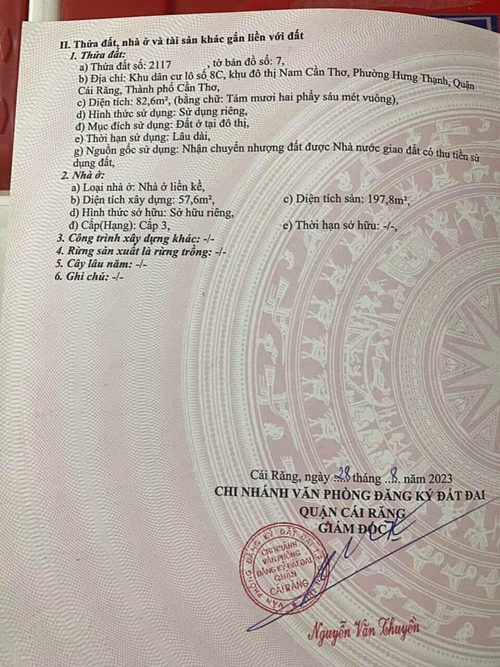 II. Thửa đất, nhà ở và tài sản khác gắn liền với đất
1. Thửa đất:
a) Thửa đất số: 2117 , tờ bản đồ số: 7,
b) Địa chỉ: Khu dân cư lô số 8C, khu đô thị Nam Cần Thơ, Phường Hưng Thạnh, Quận
Cái Răng, Thành phố Cần Thơ,
c) Diện tích: 82,6m², (bằng chữ: Tám mươi hai phẩy sáu mét vuông),
d) Hình thức sử dụng: Sử dụng riêng,
đ) Mục đích sử dụng: Đất ở tại đô thị,
e) Thời hạn sử dụng: Lâu dài,
g) Nguồn gốc sử dụng: Nhận chuyển nhượng đất được Nhà nước giao đất có thu tiền sử
dụng đất,
2. Nhà ở:
a) Loại nhà ở: Nhà ở liền kề,
b) Diện tích xây dựng: 57,6m², c) Diện tích sàn: 197,8m²,
d) Hình thức sở hữu: Sở hữu riêng,
đ) Cấp(Hạng): Cấp 3, e) Thời hạn sở hữu: -/-,
3. Công trình xây dựng khác: -/-
4. Rừng sản xuất là rừng trồng: -/-
5. Cây lâu năm: -/-
6. Ghi chú: -/-
Cái Răng, ngày 28 tháng 8 năm 2023
CHI NHÁNH VĂN PHÒNG ĐĂNG KÝ ĐẤT ĐAI
QUẬN CÁI RĂNG
GIÁM ĐỐC
CHI NHÁNH
VĂN PHÒNG
ĐĂNG KÝ ĐẤT ĐAI
QUẬN
CÁI RĂNG
Nguyễn Văn Thuyền